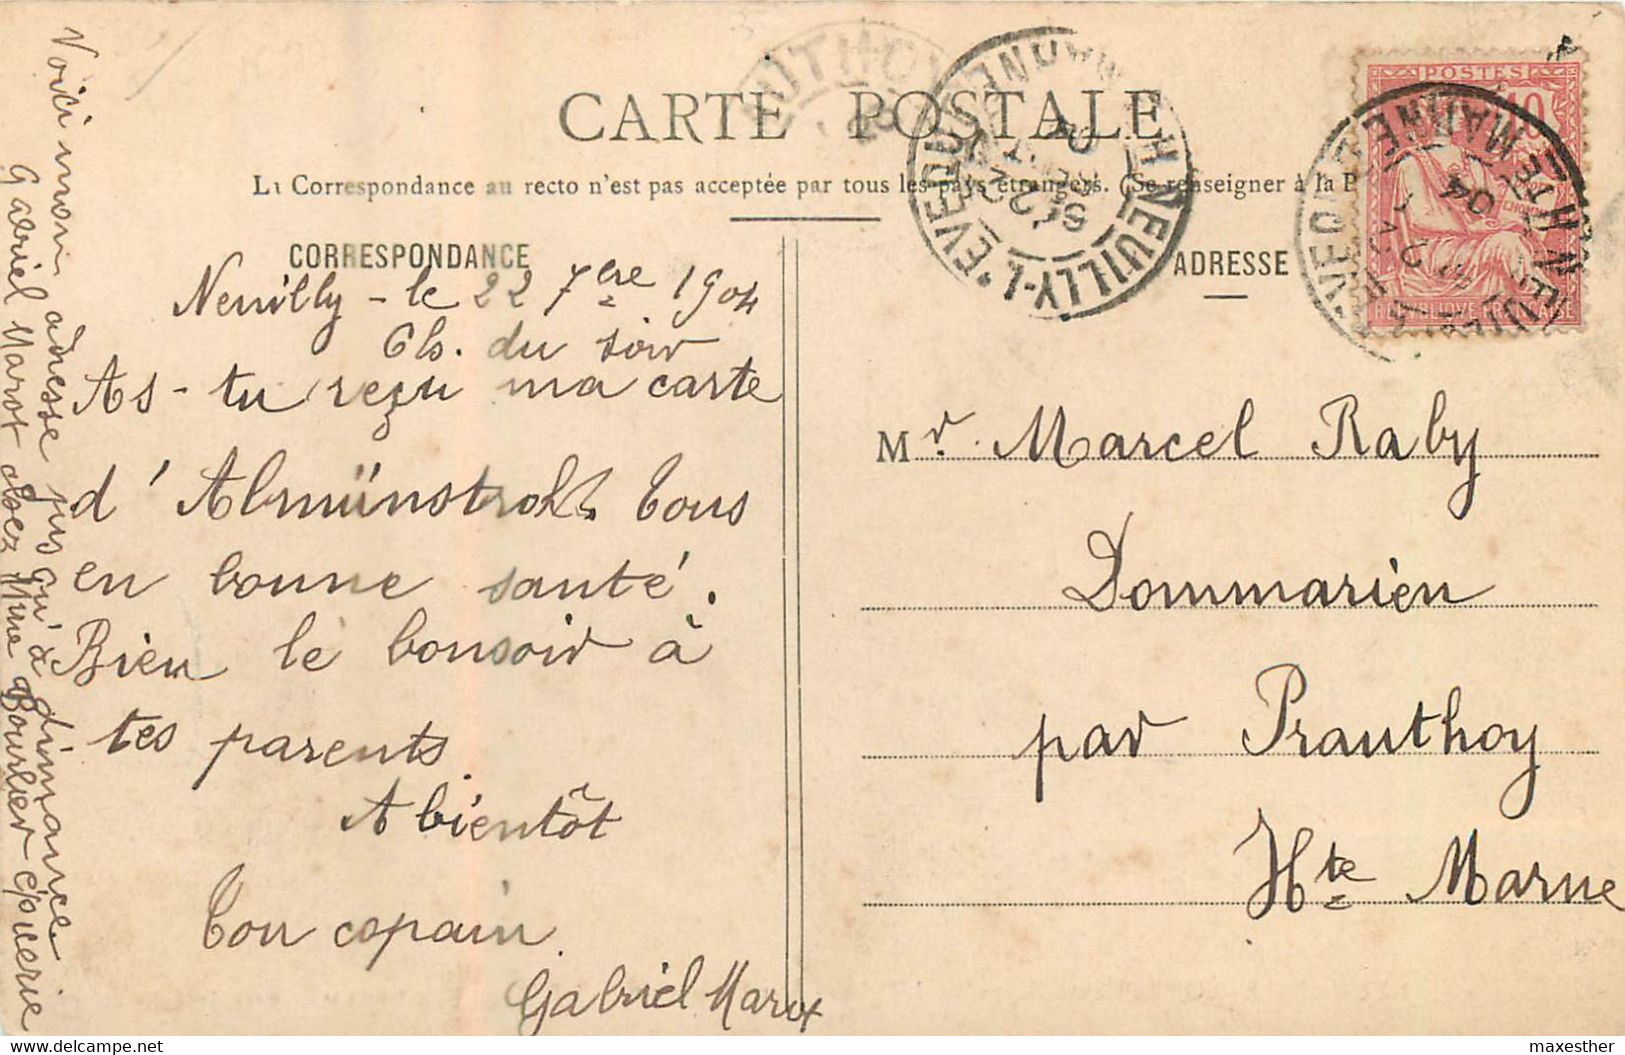 CARTE POSTALE
La Correspondance au recto n'est pas acceptée par tous les pays étrangers. (Se renseigner à la P
CORRESPONDANCE
Neuilly - le 22 7bre 1904
6h. du soir
As-tu reçu ma carte
d'Abmünstrohl. Tous
en bonne santé.
Bien le bonsoir à
tes parents.
A bientôt
Ton copain.
Gabriel Marot
Voici mon adresse jusqu'à dimanche
Gabriel Marot chez Mme Bourlier épicerie
ADRESSE
Mr. Marcel Raby
Dommarien
par Prauthoy
Hte Marne
POSTES
10
REPUBLIQUE FRANÇAISE
NEUILLY-L'EVEQUE
HTE MARNE
04
maxesther